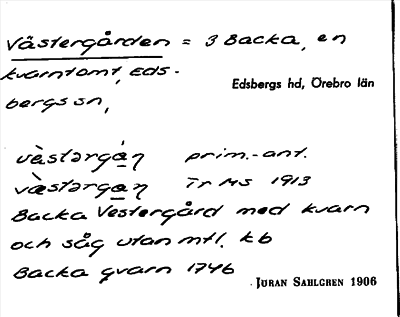 Västergården = 3 Backa, en
kvarntomt, Eds-
bergs sn,
Edsbergs hd, Örebro län
vèstərgå̀ɳ prim.-ant.
væ̀stərgaɳ Tr MS 1913
Backa Vestergård med kvarn
och såg utan mtl. kb
Backa qvarn 1746
JURAN SAHLGREN 1906